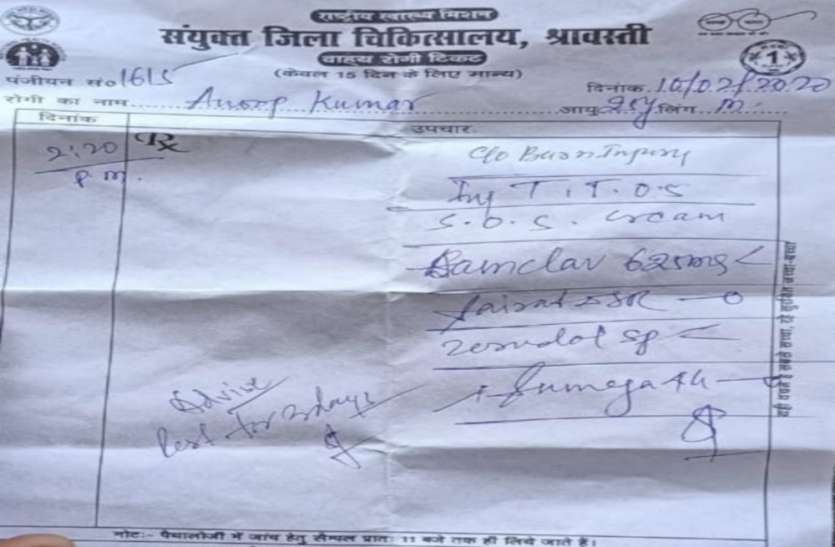 राष्ट्रीय स्वास्थ्य मिशन
संयुक्त जिला चिकित्सालय, श्रावस्ती
वाहय रोगी टिकट
(केवल 15 दिन के लिए मान्य)
पंजीयन सं० 1615
दिनांक 10/02/2020
रोगी का नाम Anoop Kumar आयु लिंग M
दिनांक उपचार
2:20 Rx
P.m.
C/o Burn Injury
Inj T.T. O.S
S.O.S. cream
625mg
Zerodol SP
Advise
Rest for days
नोट:- पैथालोजी में जांच हेतु सैम्पल प्रातः 11 बजे तक ही लिये जाते हैं।